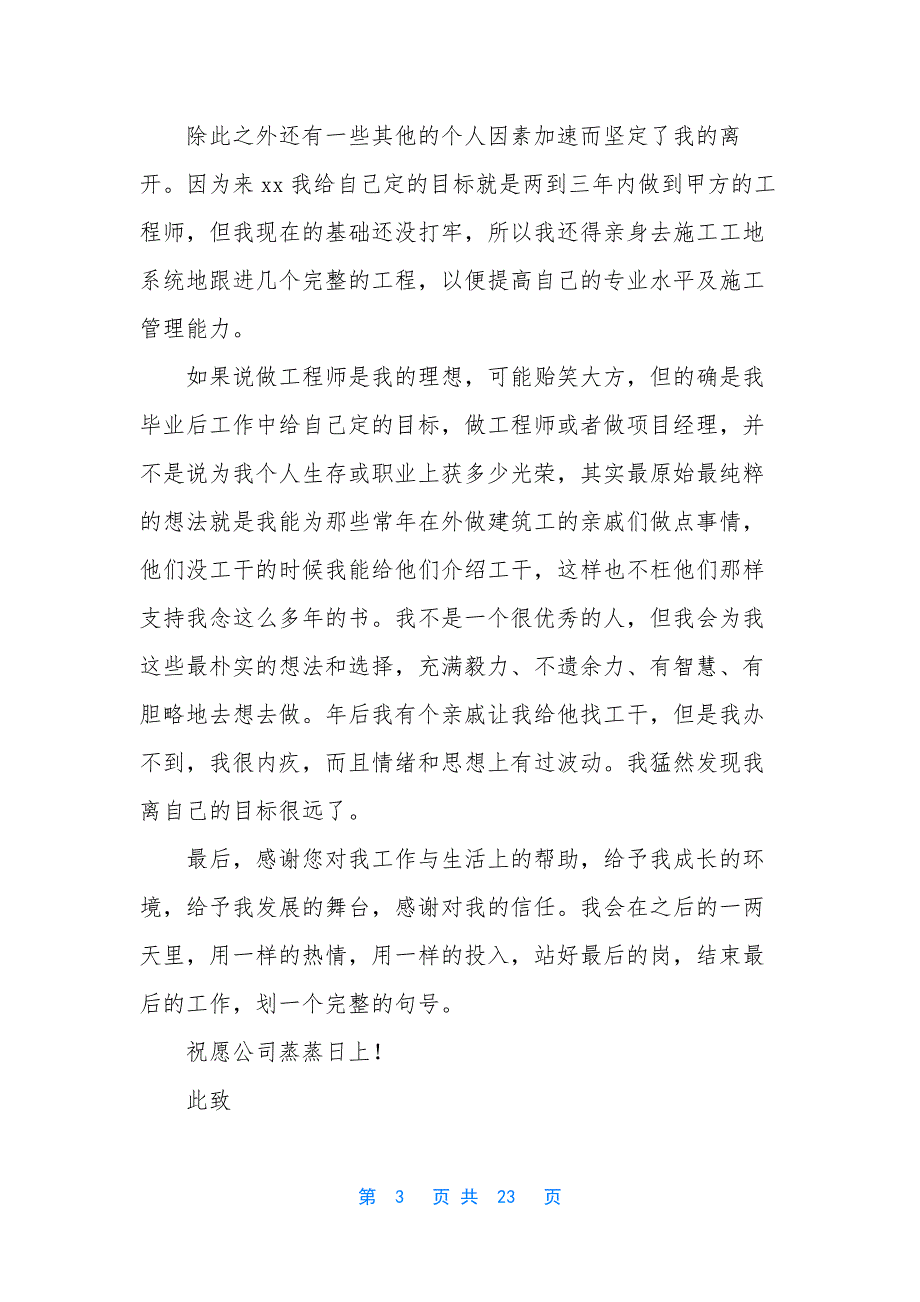 除此之外还有一些其他的个人因素加速而坚定了我的离
开。因为来 xx 我给自己定的目标就是两到三年内做到甲方的工
程师，但我现在的基础还没打牢，所以我还得亲身去施工工地
系统地跟进几个完整的工程，以便提高自己的专业水平及施工
管理能力。
如果说做工程师是我的理想，可能贻笑大方，但的确是我
毕业后工作中给自己定的目标，做工程师或者做项目经理，并
不是说为我个人生存或职业上获多少光荣，其实最原始最纯粹
的想法就是我能为那些常年在外做建筑工的亲戚们做点事情，
他们没工干的时候我能给他们介绍工干，这样也不枉他们那样
支持我念这么多年的书。我不是一个很优秀的人，但我会为我
这些最朴实的想法和选择，充满毅力、不遗余力、有智慧、有
胆略地去想去做。年后我有个亲戚让我给他找工干，但是我办
不到，我很内疚，而且情绪和思想上有过波动。我猛然发现我
离自己的目标很远了。
最后，感谢您对我工作与生活上的帮助，给予我成长的环
境，给予我发展的舞台，感谢对我的信任。我会在之后的一两
天里，用一样的热情，用一样的投入，站好最后的岗，结束最
后的工作，划一个完整的句号。
祝愿公司蒸蒸日上！
此致
第 3 页 共 23 页